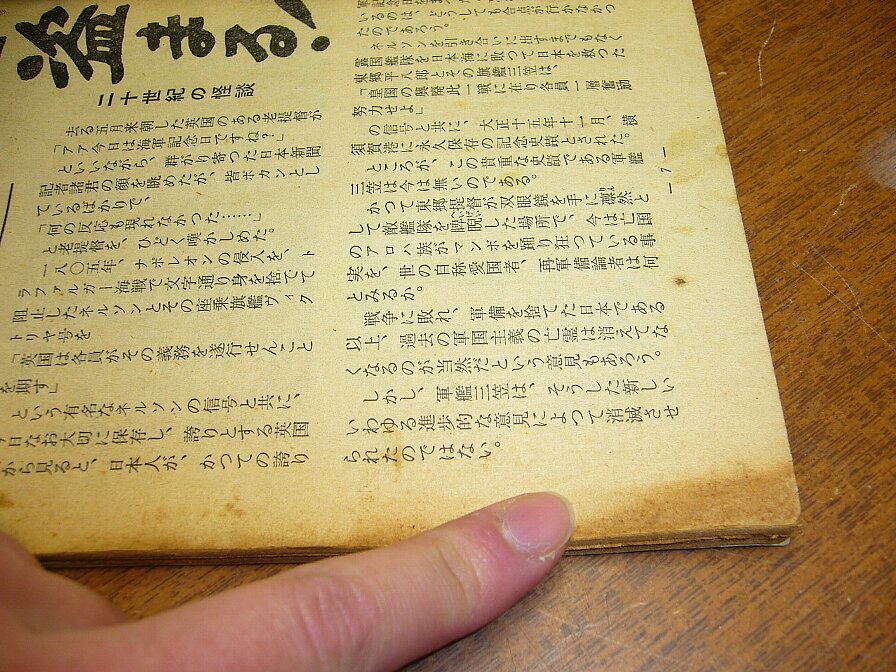 盗まる!
二十世紀の怪談
去る五月来朝した英国のある老提督が
「アア今日は海軍記念日ですね?」
といいながら、群がり寄った日本新聞
記者諸君の顔を眺めたが、皆ポカンとし
ているばかりで、
「何の反応も現れなかった……」
と老提督を、ひどく嘆かしめた。
一八〇五年、ナポレオンの侵入を、ト
ラファルガー海戦で文字通り身を捨てて
阻止したネルソンとその座乗旗艦ヴィク
トリヤ号を
「英国は各員がその義務を遂行せんこと
を期す」
という有名なネルソンの信号と共に、
日なお大切に保存し、誇りとする英国
から見ると、日本人が、かつての誇り
いるのは、どうしても合点が行かなかっ
たのであろう。
ネルソンを引き合いに出すまでもなく
露国艦隊を日本海に敗って日本を救った
東郷平八郎とその旗艦三笠は、
「皇国の興廃此一戦に在り各員一層奮励
努力せよ」
の信号と共に、大正十五年十一月、横
須賀港に永久保存の記念史蹟とされた。
ところが、この貴重な史蹟である軍艦
三笠は今は無いのである。
かつて東郷提督が双眼鏡を手に凛然と
して敵艦隊を睥睨した場所で、今は亡国
のアロハ族がマンボを踊り狂っている事
実を、世の自称愛国者、再軍備論者は何
とみるか。
戦争に敗れ、軍備を捨てた日本である
以上、過去の軍国主義の亡霊は消えてな
くなるのが当然だという意見もあろう。
しかし、軍艦三笠は、そうした新しい
いわゆる進歩的な意見によって消滅させ
られたのではない。
— 7 —